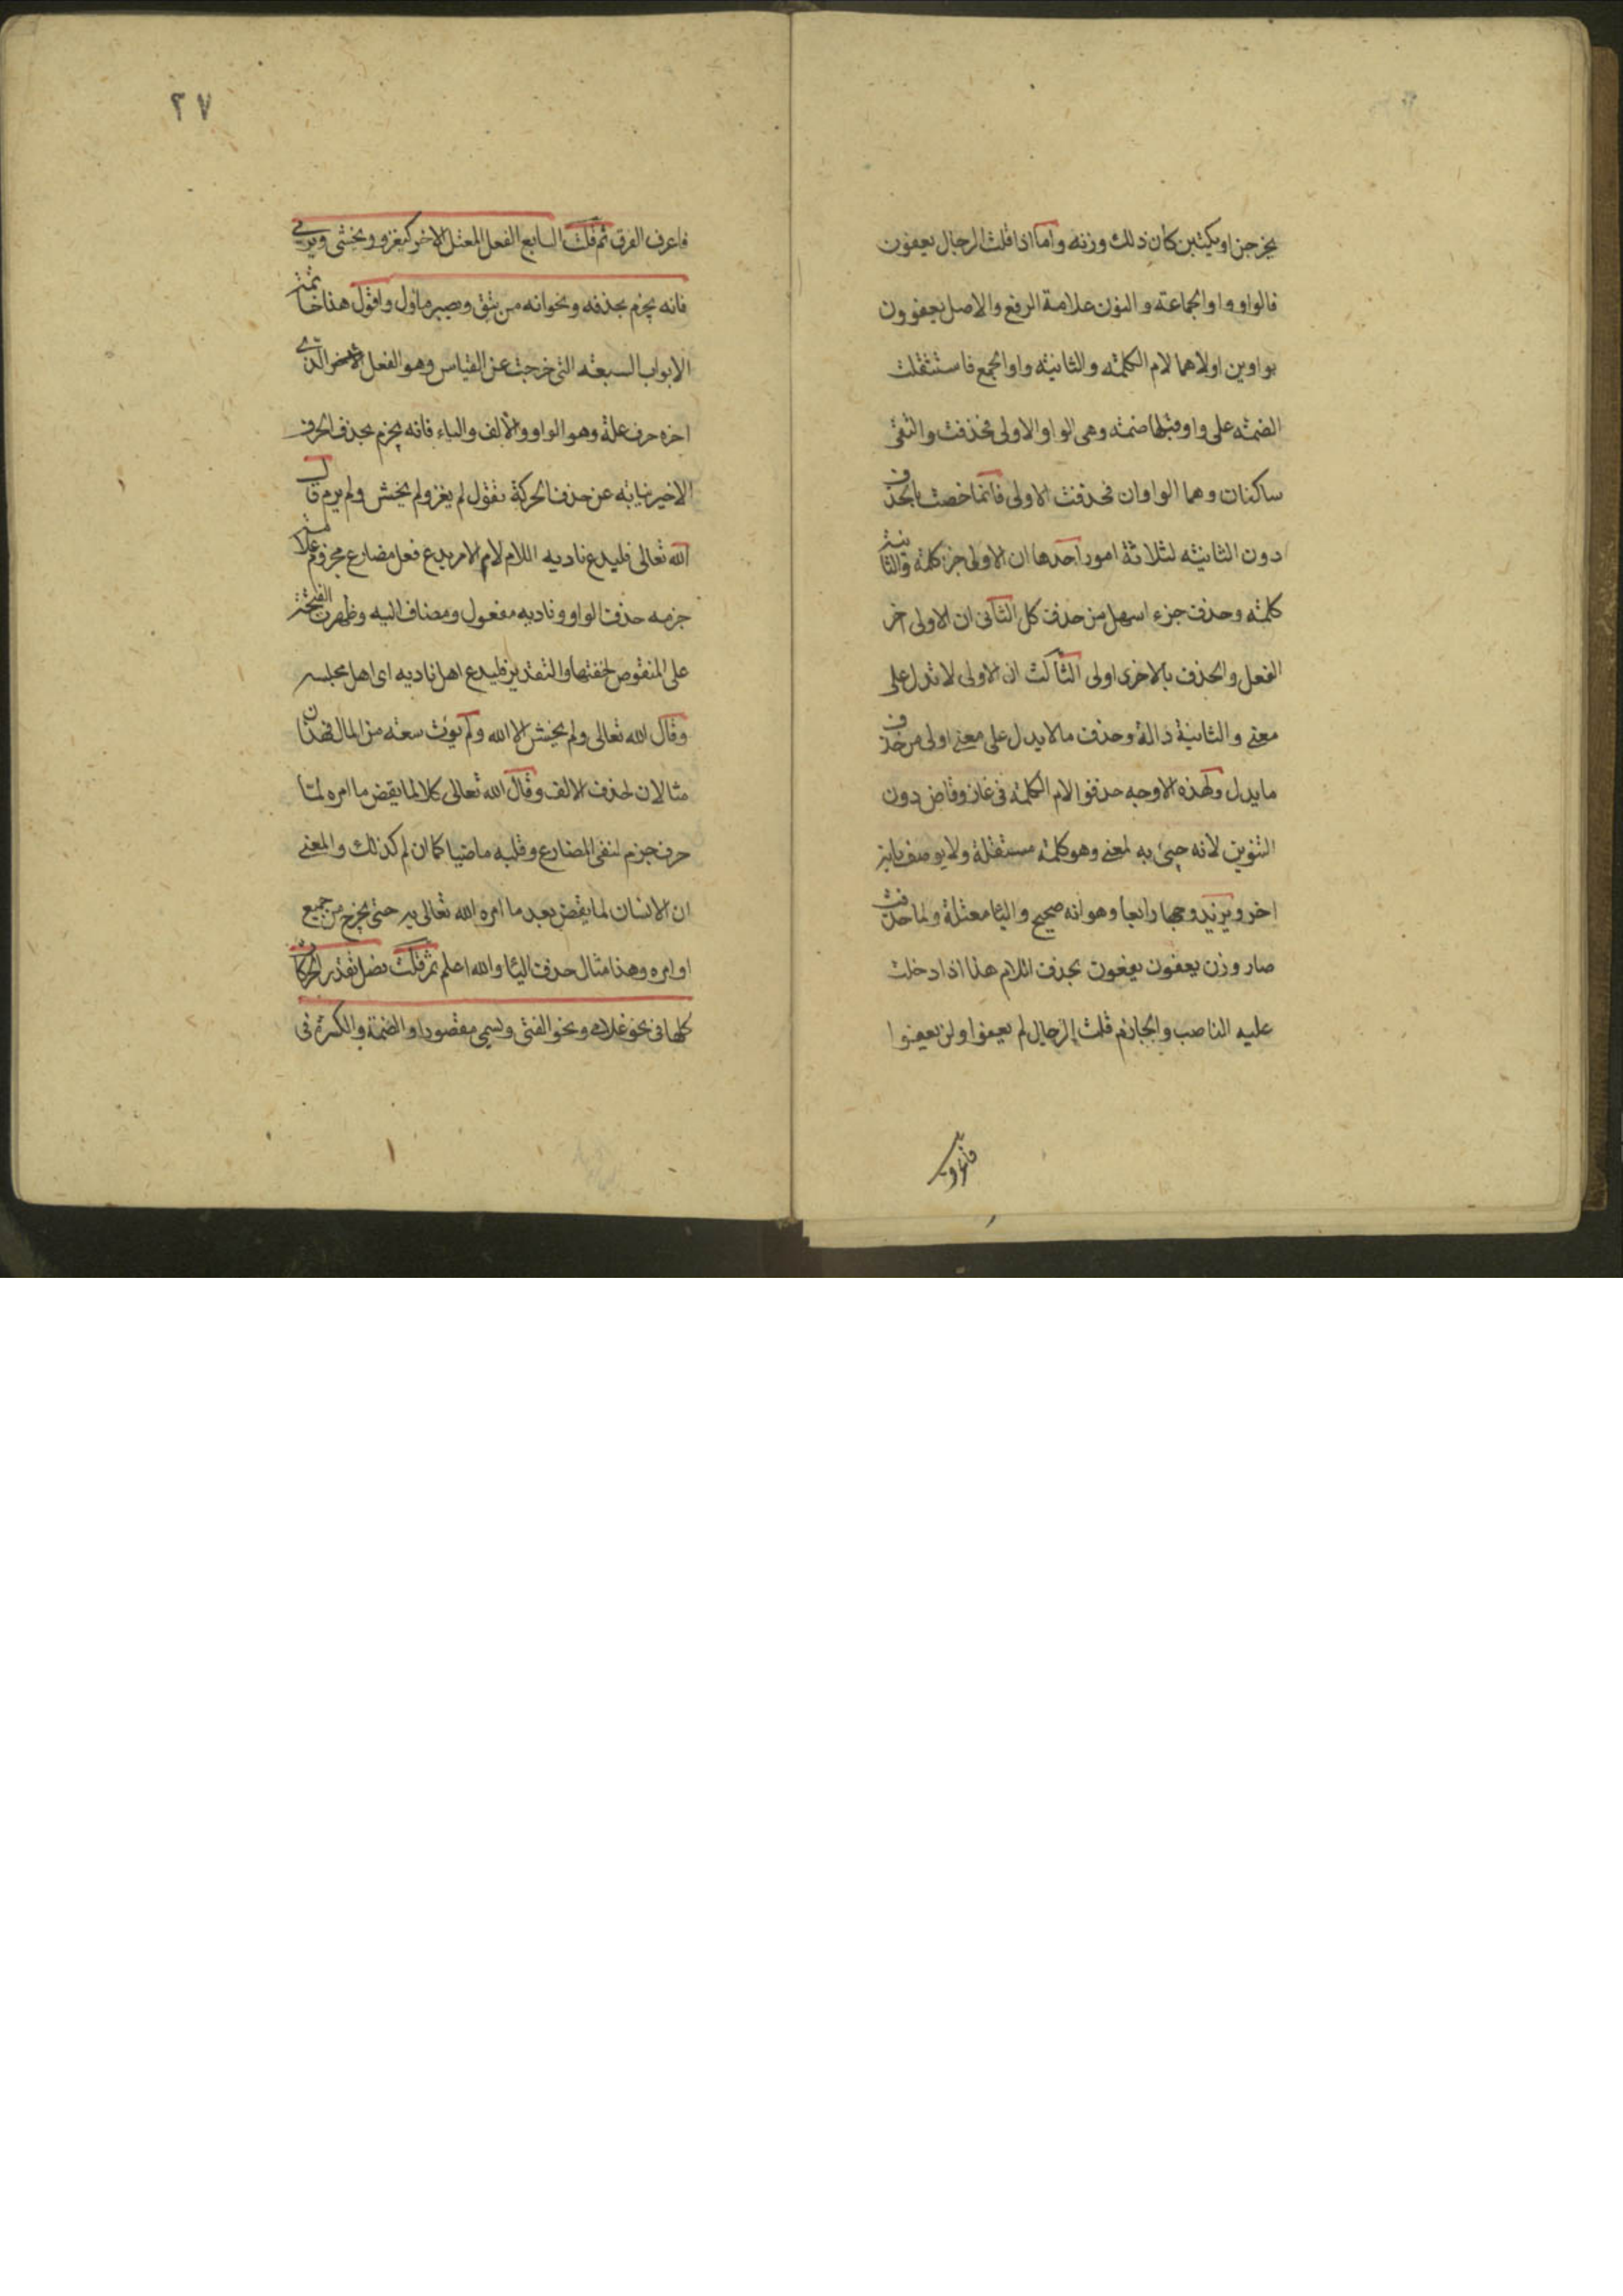 يخرجن او يكتبن كان ذلك وزنه واما اذا قلت الرجال يعفون
فالواو واو الجماعة والنون علامة الرفع والاصل يعفوون
بواوين اولاهما لام الكلمة والثانية واو الجمع فاستثقلت
الضمة على واو قبلها ضمة وهى الواو الاولى فحذفت والتقى
ساكنان وهما الواوان فحذفت الاولى فانما خصت بالحذف
دون الثانية لثلاثة امور احدها ان الاولى جزء كلمة والثانية
كلمة وحذف جزء اسهل من حذف كل الثانى ان الاولى اخر
الفعل والحذف بالاخرى اولى الثالث ان الاولى لا تدل على
معنى والثانية دالة وحذف ما لا يدل على معنى اولى من حذف
ما يدل ولهذه الاوجه حذفوا لام الكلمة فى غاز وقاض دون
التنوين لانه جيئ به لمعنى وهو كلمة مستقلة ولا يوصف بانه
اخر ويزيد وجها رابعا وهو انه صحيح واليا معتلة ولما حذفت
صار وزن يعفون يفعون بحذف اللام هذا اذا دخلت
عليه الناصب والجازم قلت الرجال لم يعفوا ولن يعفوا
فاعرف
٢٧
فاعرف الفرق ثم قلت السابع الفعل المعتل الاخر كيغزو ويخشى ويرمى
فانه يجزم بحذفه ونحو انه من يتق ويصبر ماول واقول هذا خاتمة
الابواب السبعة التى خرجت عن القياس وهو الفعل الذى
اخره حرف علة وهو الواو والالف والياء فانه يجزم بحذف الحرف
الاخير نيابة عن حذف الحركة تقول لم يغز ولم يخش ولم يرم قال
الله تعالى فليدع ناديه اللام لام الامر يدع فعل مضارع مجزوم علامة
جزمه حذف الواو وناديه مفعول ومضاف اليه وظهرت الفتحة
على المنقوص لخفتها والتقدير فليدع اهل ناديه اى اهل مجلسه
وقال الله تعالى ولم يخش الا الله ولم يؤت سعة من المال فهذان
مثالان لحذف الالف وقال الله تعالى كلا لما يقض ما امره لما
حرف جزم لنفى المضارع وقلبه ماضيا كما ان لم كذلك والمعنى
ان الانسان لما يقض بعد ما امره الله تعالى به حتى يخرج من جميع
اوامره وهذا مثال حذف اليا والله اعلم ثم قلت فصل تقدر الحركات
كلها فى نحو غلامى ونحو الفتى ويسمى مقصورا والضمة والكسرة فى